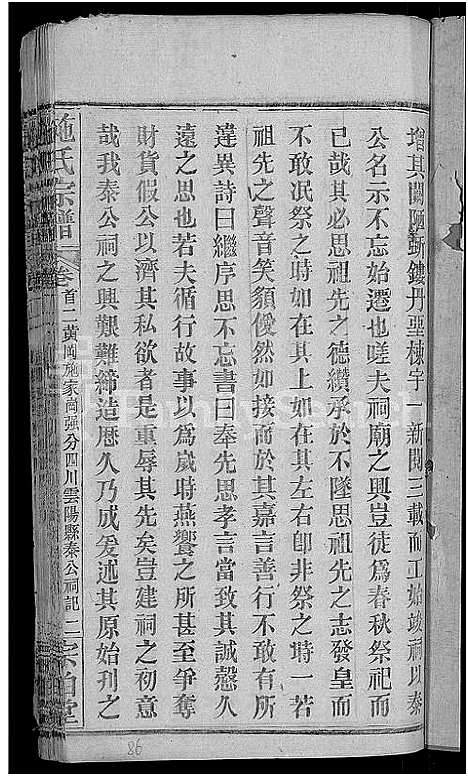 增其闕陋斲鏤丹堊棟宇一新閱三載而工始竣祠以秦
公名示不忘始遷也嗟夫祠廟之興豈徒爲春秋祭祀而
已哉其必思祖先之德纘承於不墜思祖先之志發皇而
不敢泯祭之時如在其上如在其左右卽非祭之時一若
祖先之聲音笑貌僾然如接而於其嘉言善行不敢有所
違異詩曰繼序思不忘書曰奉先思孝言當致其誠慤久
遠之思也若夫循行故事以爲歲時燕饗之所甚至爭奪
財貨假公以濟其私欲者是重辱其先矣豈建祠之初意
哉我秦公祠之興艱難締造歷久乃成爰述其原始刋之
施氏宗譜 卷首二 黃岡施家崗强分四川雲陽縣秦公祠記 二 宗伯堂
86
FamilySearch